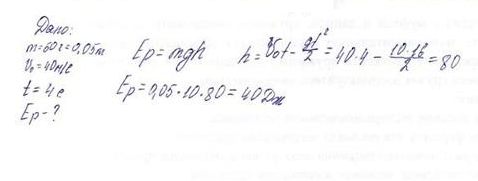 Дано:
m=50г=0,05м
V₀=40м/с
t=4с
Eр-?
Eр=mgh h=V₀t-gt²/2=40·4-10·16/2=80
Eр=0,05·10·80=40Дж